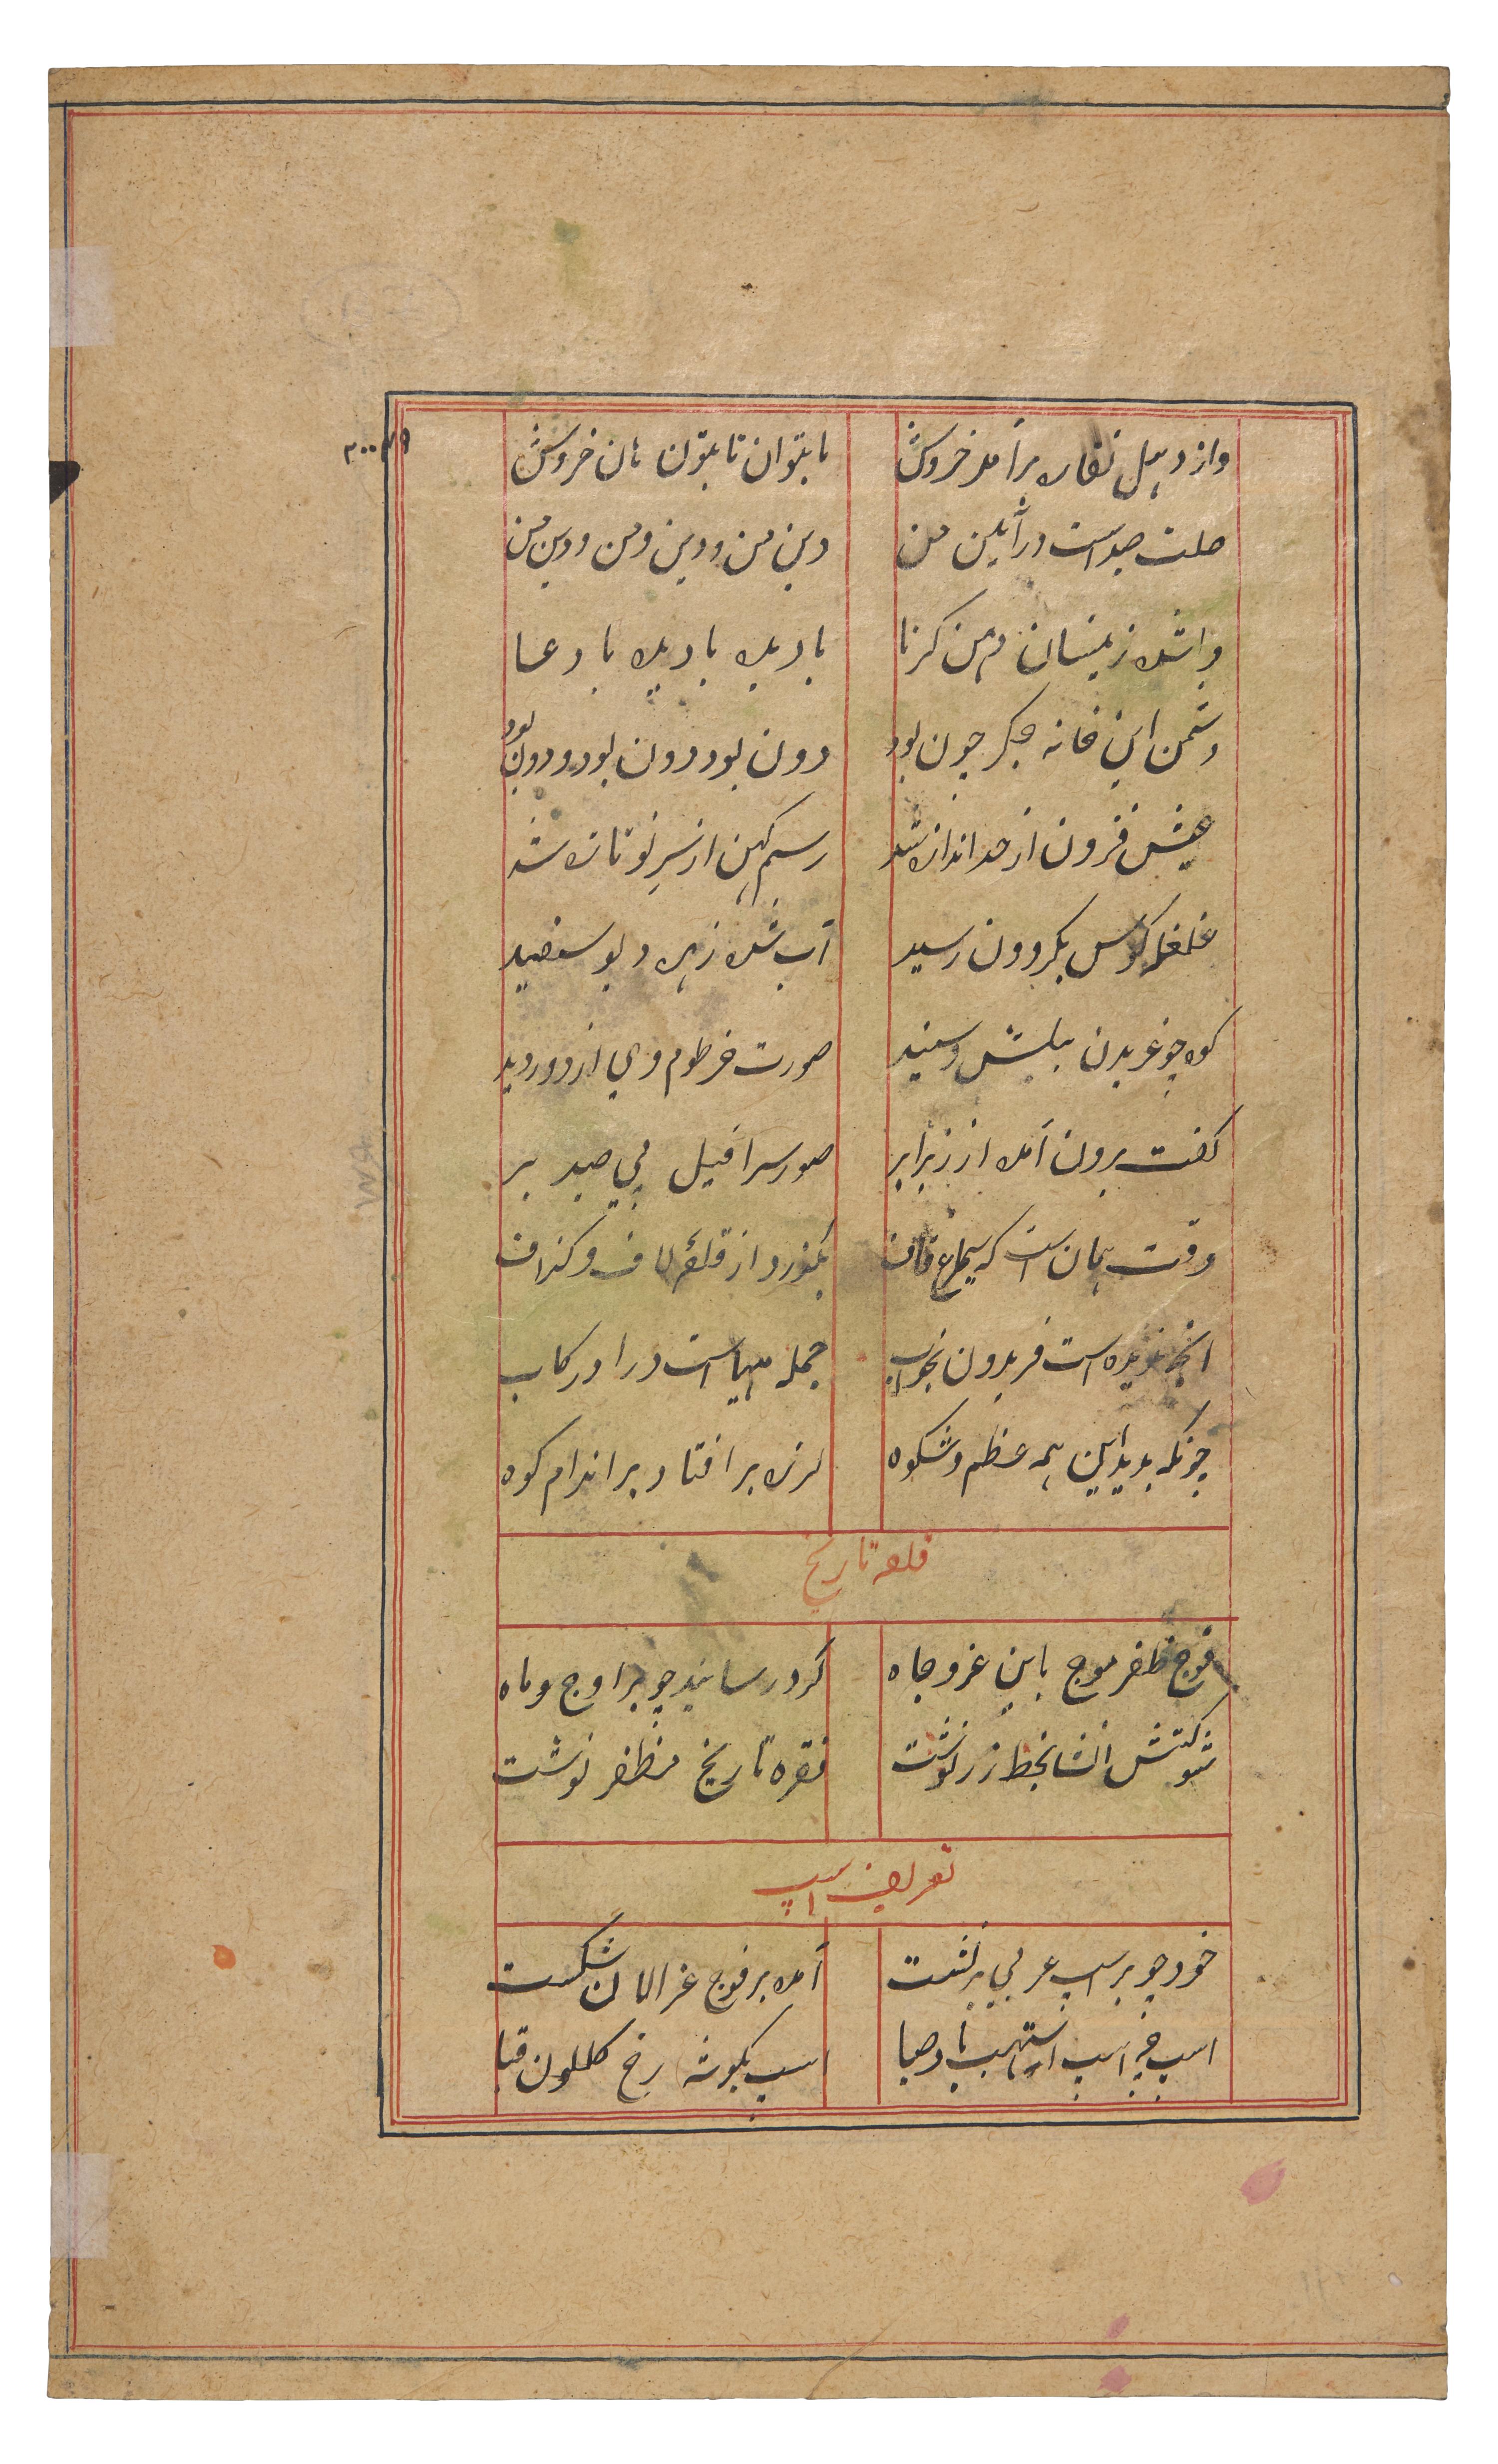 واز دہل نقارہ برآمد خروش تا بتوان تا بتوان ہان خروش
صلت صداست در آئین من دین من و دین و من و دین من
وا شدہ زینسان دہن کرنا باد بدہ باد بدہ با دعا
دشمن این خانہ جگر خون بود دون بود دون بود و دون بود
عیش فزون از حد اندازہ شد رسم کہن از سر نو تازہ شد
غلغلہ کوس بگردون رسید آب شدہ زہرہ دیو سفید
کوہ چو غریدن پیلش شنید صورت خرطوم وی از دور دید
گفت برون آمدہ از زیر ابر صور سرافیل پی صید ببر
وقت ہمان است کہ سیمرغ قاف بگذرد از قلۂ لاف و گزاف
آنچہ ندیدہ است فریدون بخواب جملہ مہیاست ورا در رکاب
چونکہ بدید این ہمہ عظم و شکوہ لرزہ بر افتاد بر اندام کوہ
قطعہ تاریخ
فوج ظفر موج باین عز و جاہ گرد رسانید چو بر اوج و ماہ
شوکتش انشا بخط زر نوشت فقرہ تاریخ مظفر نوشت
تعریف اسپ
خود چو بر اسپ عربی بر نشست آمدہ بر فوج غزالان شکست
اسپ نہ اسپ اشہب باد صبا اسپ نگو شہ رخ گلگون قبا